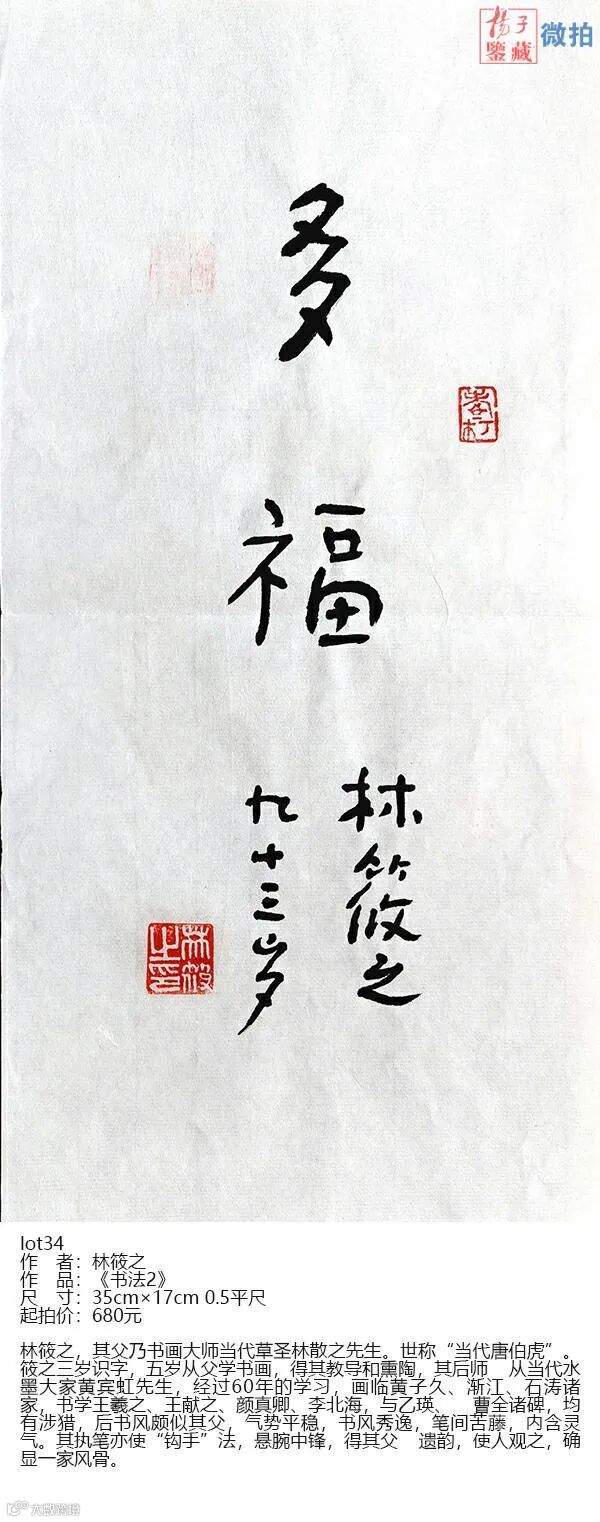 楊子
鑒藏
微拍
多
福
林筱之
九十三岁
lot34
作　者：林筱之
作　品：《书法2》
尺　寸：35cm×17cm 0.5平尺
起拍价：680元
林筱之，其父乃书画大师当代草圣林散之先生。世称“当代唐伯虎”。
筱之三岁识字，五岁从父学书画，得其教导和熏陶，其后师　从当代水
墨大家黄宾虹先生，经过60年的学习，画临黄子久、渐江、石涛诸
家，书学王羲之、王献之、颜真卿、李北海，与乙瑛、　曹全诸碑，均
有涉猎，后书风颇似其父，气势平稳，书风秀逸，笔间苦藤，内含灵
气。其执笔亦使“钩手”法，悬腕中锋，得其父　遗韵，使人观之，确
显一家风骨。
大数跨境